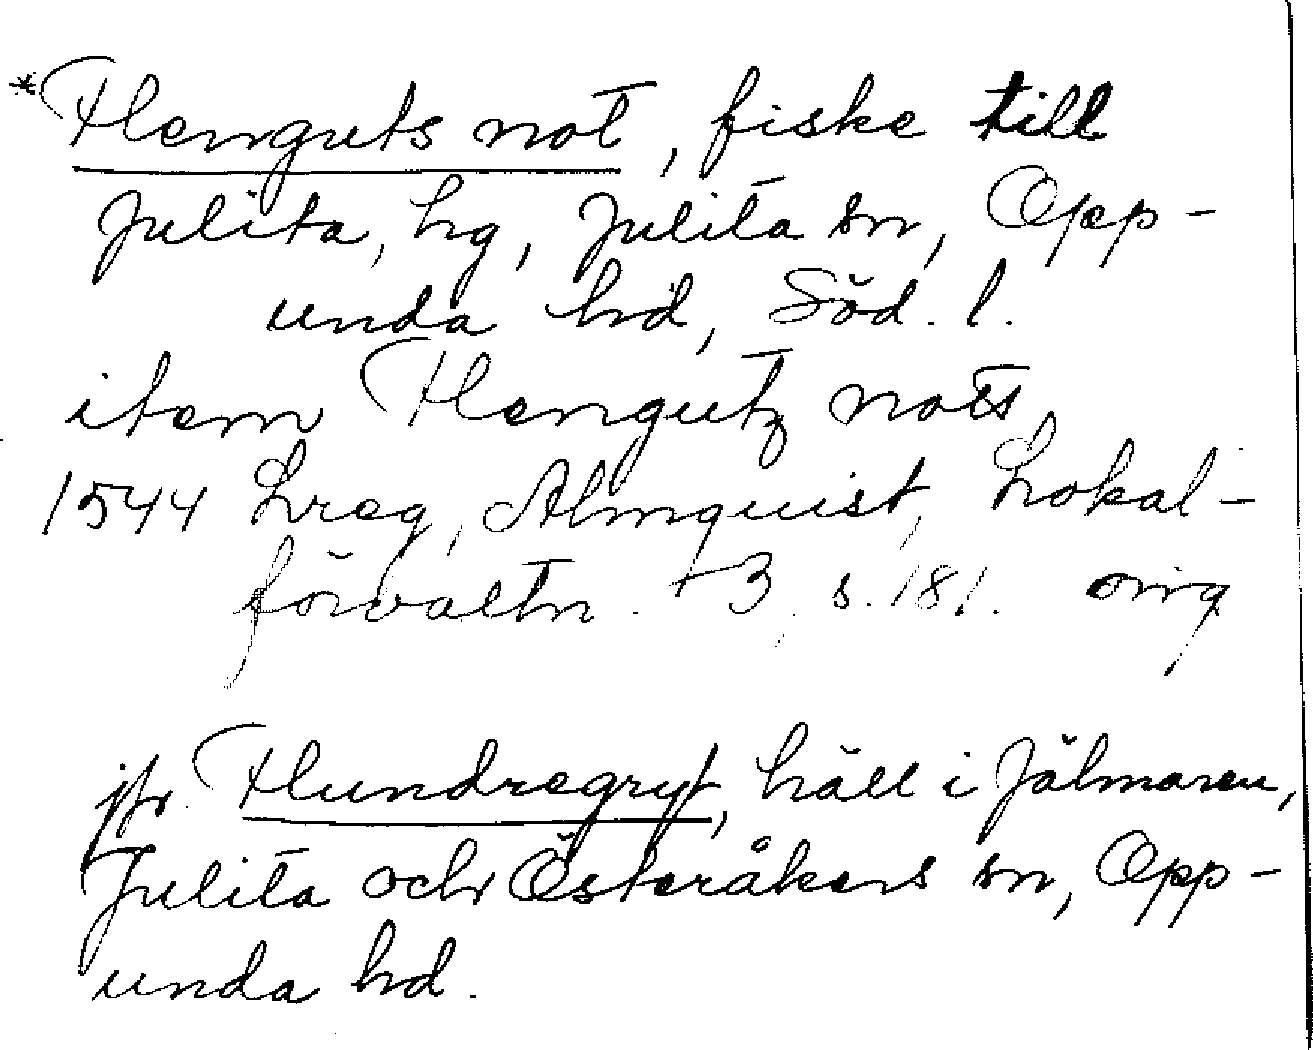 *Henguts not, fiske till
Julita, hg, Julita sn, Opp-
unda hd, Söd. l.
item Hengutz nots
1544 Lreg, Almquist, Lokal-
förvaltn. +3, s. 181. orig
jfr Hundregryt, häll i Jälmaren,
Julita och Österåkers sn, Opp-
unda hd.